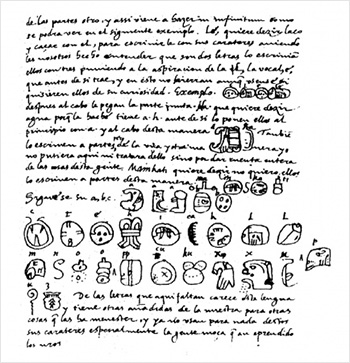 de las partes otro, y assi viene a hazer in infinitum como
se podra ver en el siguiente exemplo. Lé, quiere dezir laço
y caçar con el, para escrivirle con sus carateres aviendo
les nosotros hecho entender que son dos letras lo escrivian
ellos con tres puniendo a la aspiracion de la l, la vocal e,
que antes de si trae, y en esto no hierran aunq usen e, si
quisieren ellos de su curiosidad. Exemplo.
despues al cabo le pegan la parte junta. Ha que quiere dezir
agua porq la hache tiene a. h. ante de si lo ponen ellos al
principio con a. y al cabo desta manera Tambie
lo escriven a partes de la una y otra manera yo
no pusiera aqui ni tratara dello sino por dar cuenta entera
de las cosas desta gente. Mainkati quiere dezir no quiero ellos
lo escriven a partes desta manera
Siguese su a, b, c.
c t e h i ca k l l
m n o o p pp cu ku x x u
u z
De las letras que aqui faltan carece esta lengua
y tiene otras añadidas de la nuestra para otras
cosas q las ha menester, y ya no usan para nada destos
sus carateres especialmente la gente moça q an aprendido
los nros